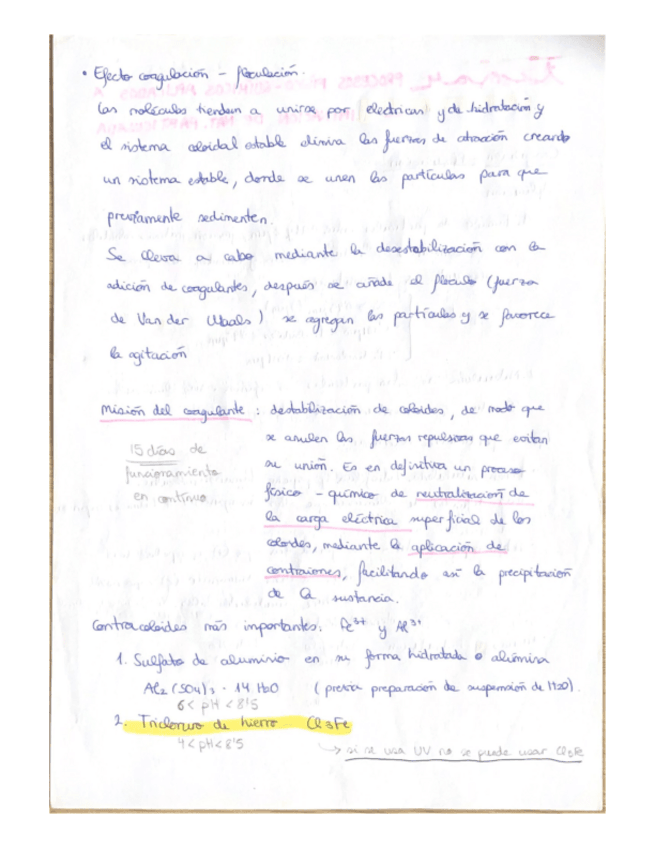 • Efecto coagulación - floculación.
Las moléculas tienden a unirse por electricas y de hidratación y
el sistema coloidal estable elimina las fuerzas de atracción creando
un sistema estable, donde se unen las partículas para que
previamente sedimenten.
Se lleva a cabo mediante la desestabilización con la
adición de coagulantes, después se añade el floculo (fuerza
de Van der Waals) se agregan las partículas y se favorece
la agitación
Misión del coagulante : destabilización de coloides, de modo que
se anulen las fuerzas repulsivas que evitan
su unión. Es en definitiva un proceso
físico - químico de neutralización de
la carga eléctrica superficial de los
coloides, mediante la aplicación de
contraiones, facilitando así la precipitación
de la sustancia.
15 días de
funcionamiento
en contínuo
Contracoloides más importantes: Fe³⁺ y Al³⁺
1. Sulfato de aluminio en su forma hidratada o alúmina
Al₂(SO₄)₃ · 14 H₂O (previa preparación de suspensión de H2O).
6 < pH < 8'5
2. Tricloruro de hierro Cl₃Fe
4 < pH < 8'5
→ si se usa UV no se puede usar Cl₃Fe